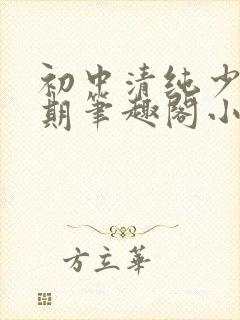 初中清纯少
期笔趣阁小
方立华